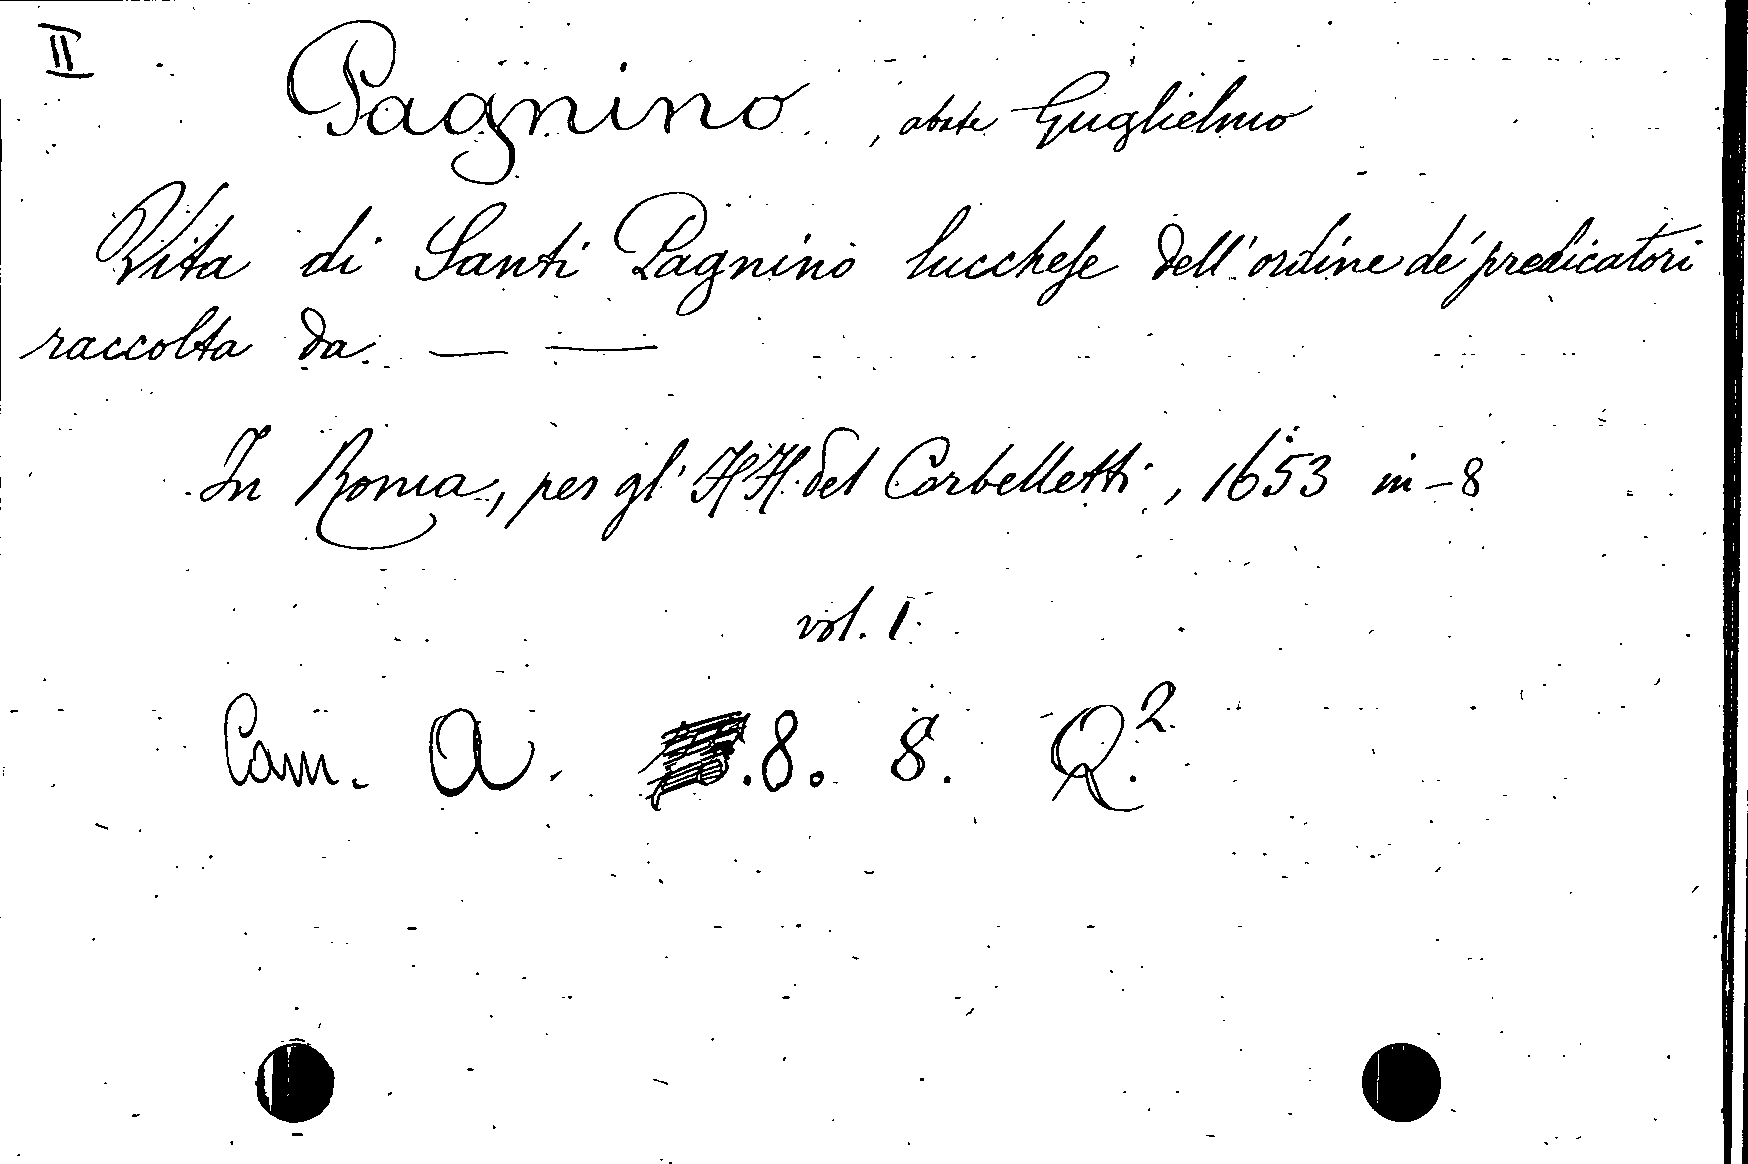 II
Pagnino, abate Guglielmo
Vita di Santi Pagnino lucchese dell'ordine de' predicatori
raccolta da — —
In Roma, per gl' HH. del Corbelletti, 1653 in-8
vol. 1
Cam. A. .8. 8. Q.2